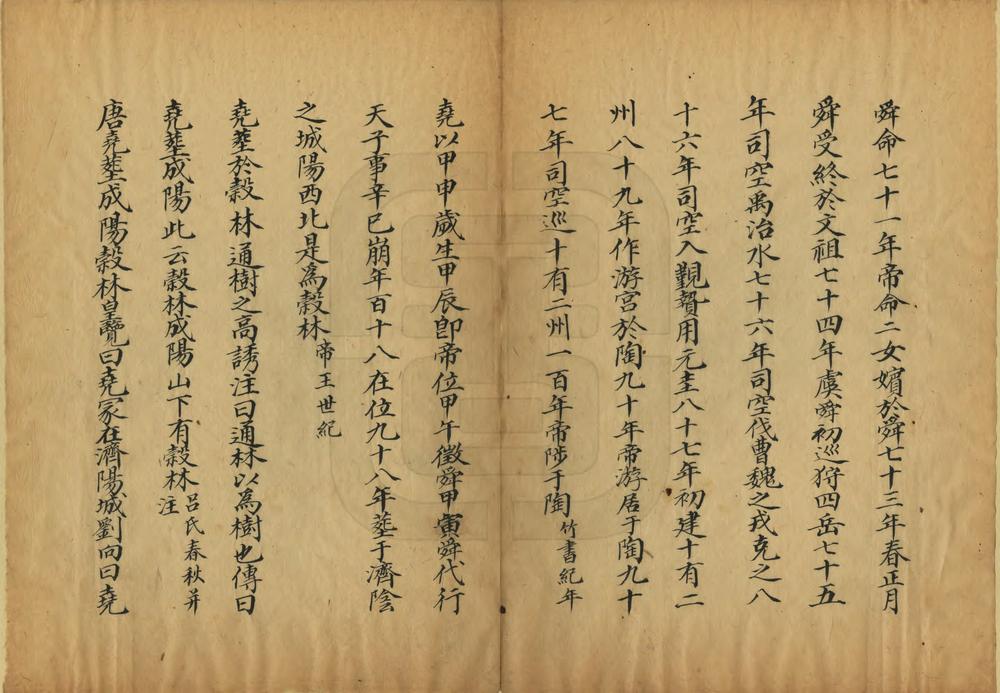 舜命七十一年帝命二女嬪於舜七十三年春正月
舜受終於文祖七十四年虞舜初巡狩四岳七十五
年司空禹治水七十六年司空伐曹魏之戎克之八
十六年司空入覲贄用元圭八十七年初建十有二
州八十九年作游宮於陶九十年帝游居于陶九十
七年司空巡十有二州一百年帝陟于陶竹書紀年
堯以甲申歲生甲辰即帝位甲午徵舜甲寅舜代行
天子事辛巳崩年百十八在位九十八年塟于濟陰
之城陽西北是為穀林帝王世紀
堯塟於穀林通樹之高誘注曰通林以為樹也傳曰
堯塟成陽此云穀林成陽山下有穀林呂氏春秋并注
唐堯塟成陽穀林皇覽曰堯冢在濟陽城劉向曰堯